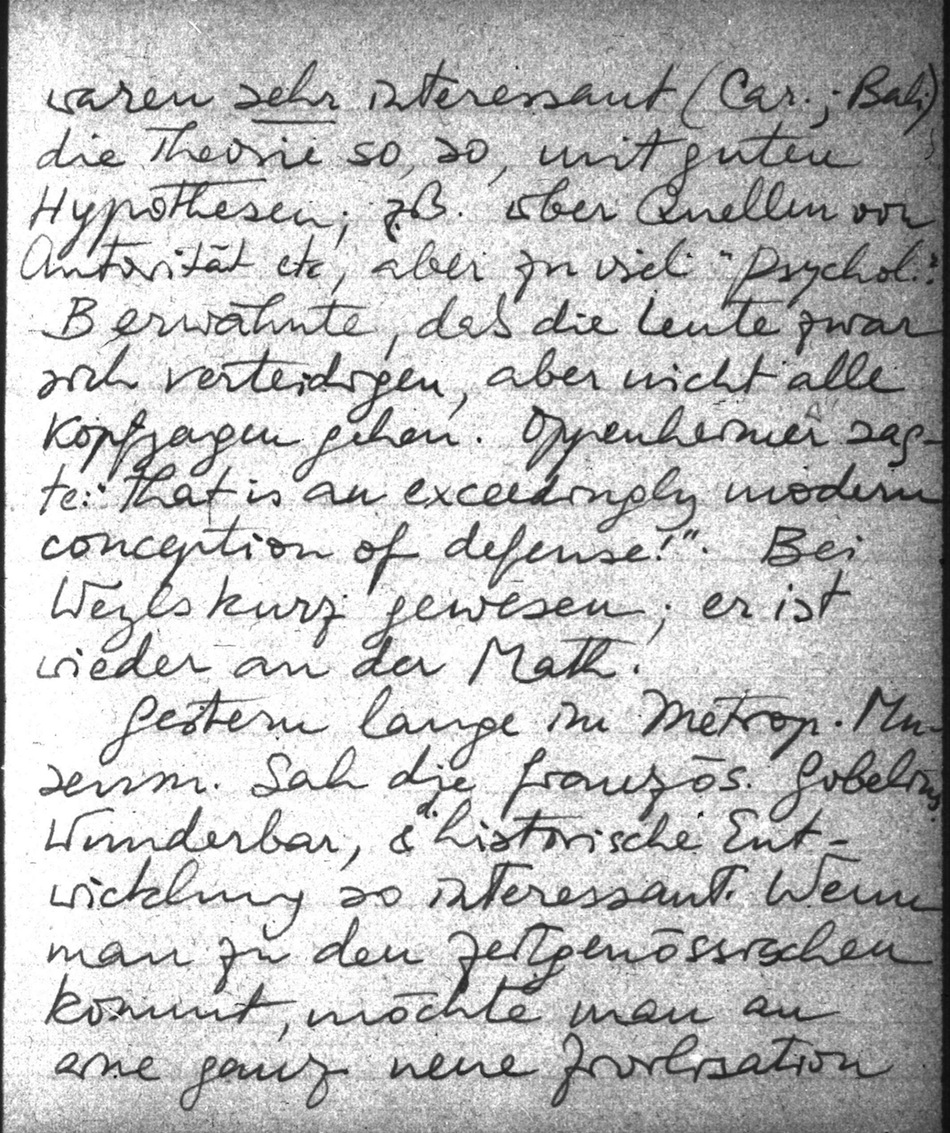 waren sehr interessant (Car.; Bali)
die Theorie so, so, mit guten
Hypothesen; zB. über Quellen von
Autorität etc, aber zu viel "Psychol."
B erwähnte, daß die Leute zwar
sich verteidigen, aber nicht alle
Kopfjagen gehen. Oppenheimer sag-
te: "That is an exceedingly modern
conception of defense!". Bei
Weyls kurz gewesen; er ist
wieder an der Math.
Gestern lange im Metrop. Mu-
seum. Sah die französ. Gobelins.
Wunderbar, & d. historische Ent-
wicklung so interessant. Wenn
man zu den zeitgenössischen
kommt, möchte man an
eine ganz neue Zivilisation